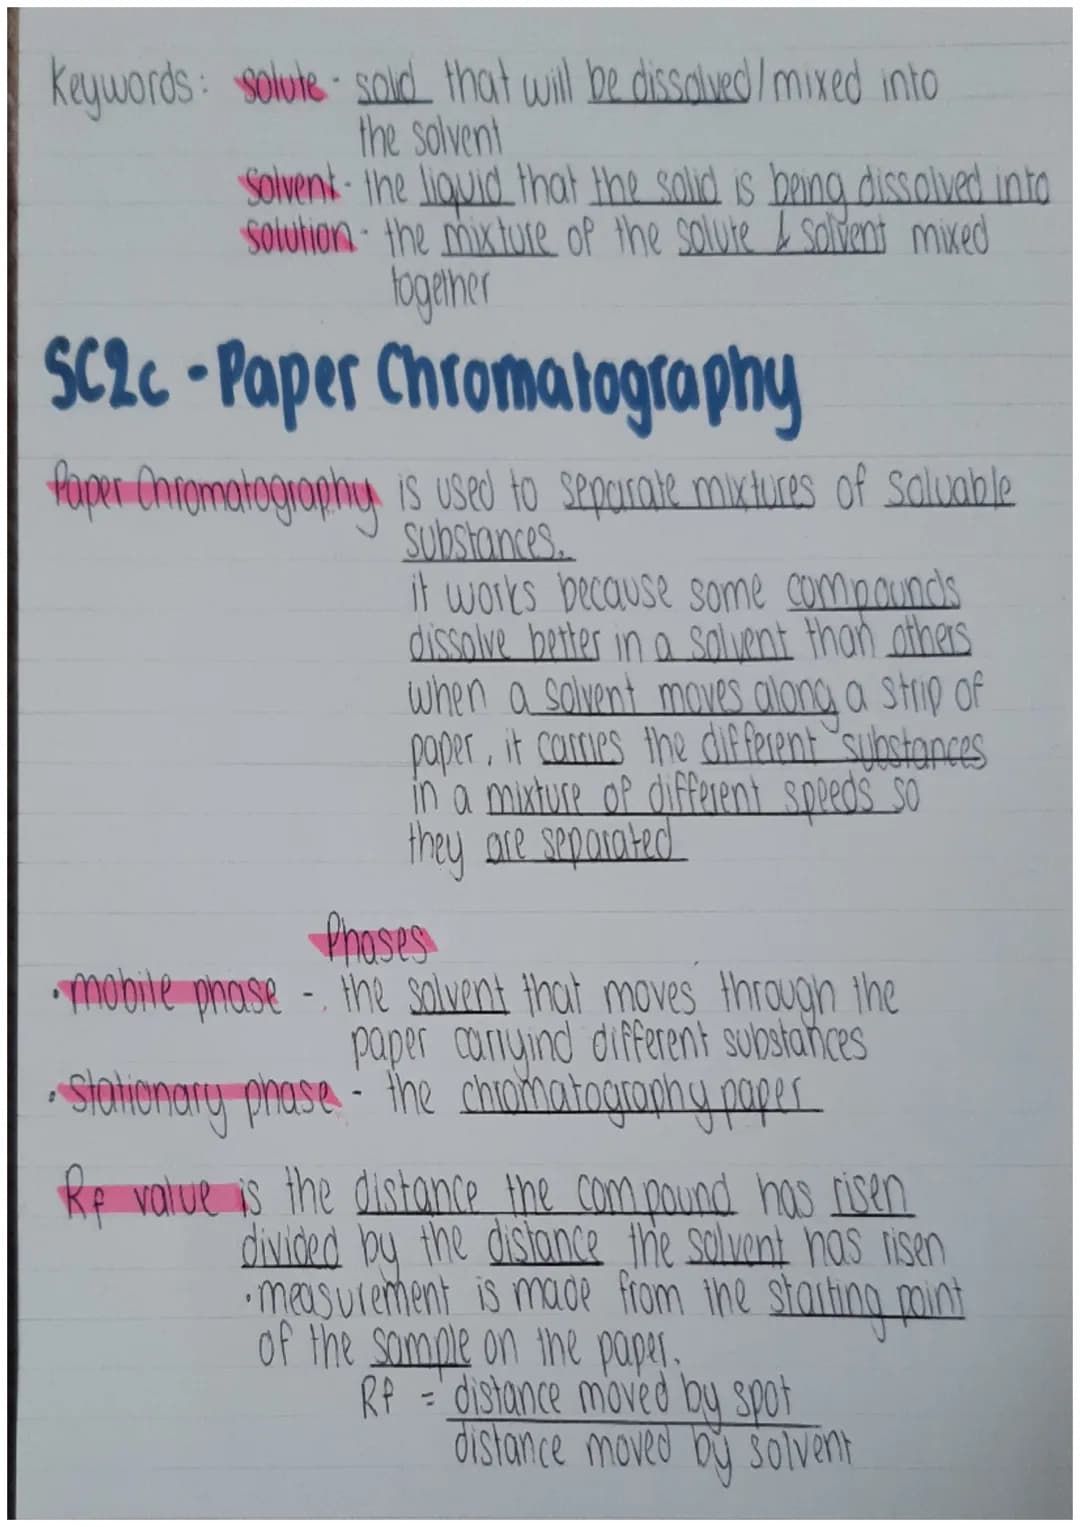 Keywords: solute - solid that will be dissolved / mixed into
the solvent
solvent - the liquid that the solid is being dissolved into
solution - the mixture of the solute & solvent mixed
together
SC2c - Paper Chromatography
Paper Chromatography is used to separate mixtures of soluable
substances.
it works because some compounds
dissolve better in a solvent than others
when a solvent moves along a strip of
paper, it carries the different substances
in a mixture of different speeds so
they are separated
Phases
• mobile phase - the solvent that moves through the
paper carryind different substances
• Stationary phase - the chromatography paper
Rf value is the distance the compound has risen
divided by the distance the solvent has risen
• measurement is made from the starting point
of the sample on the paper.
Rf = distance moved by spot
distance moved by solvent